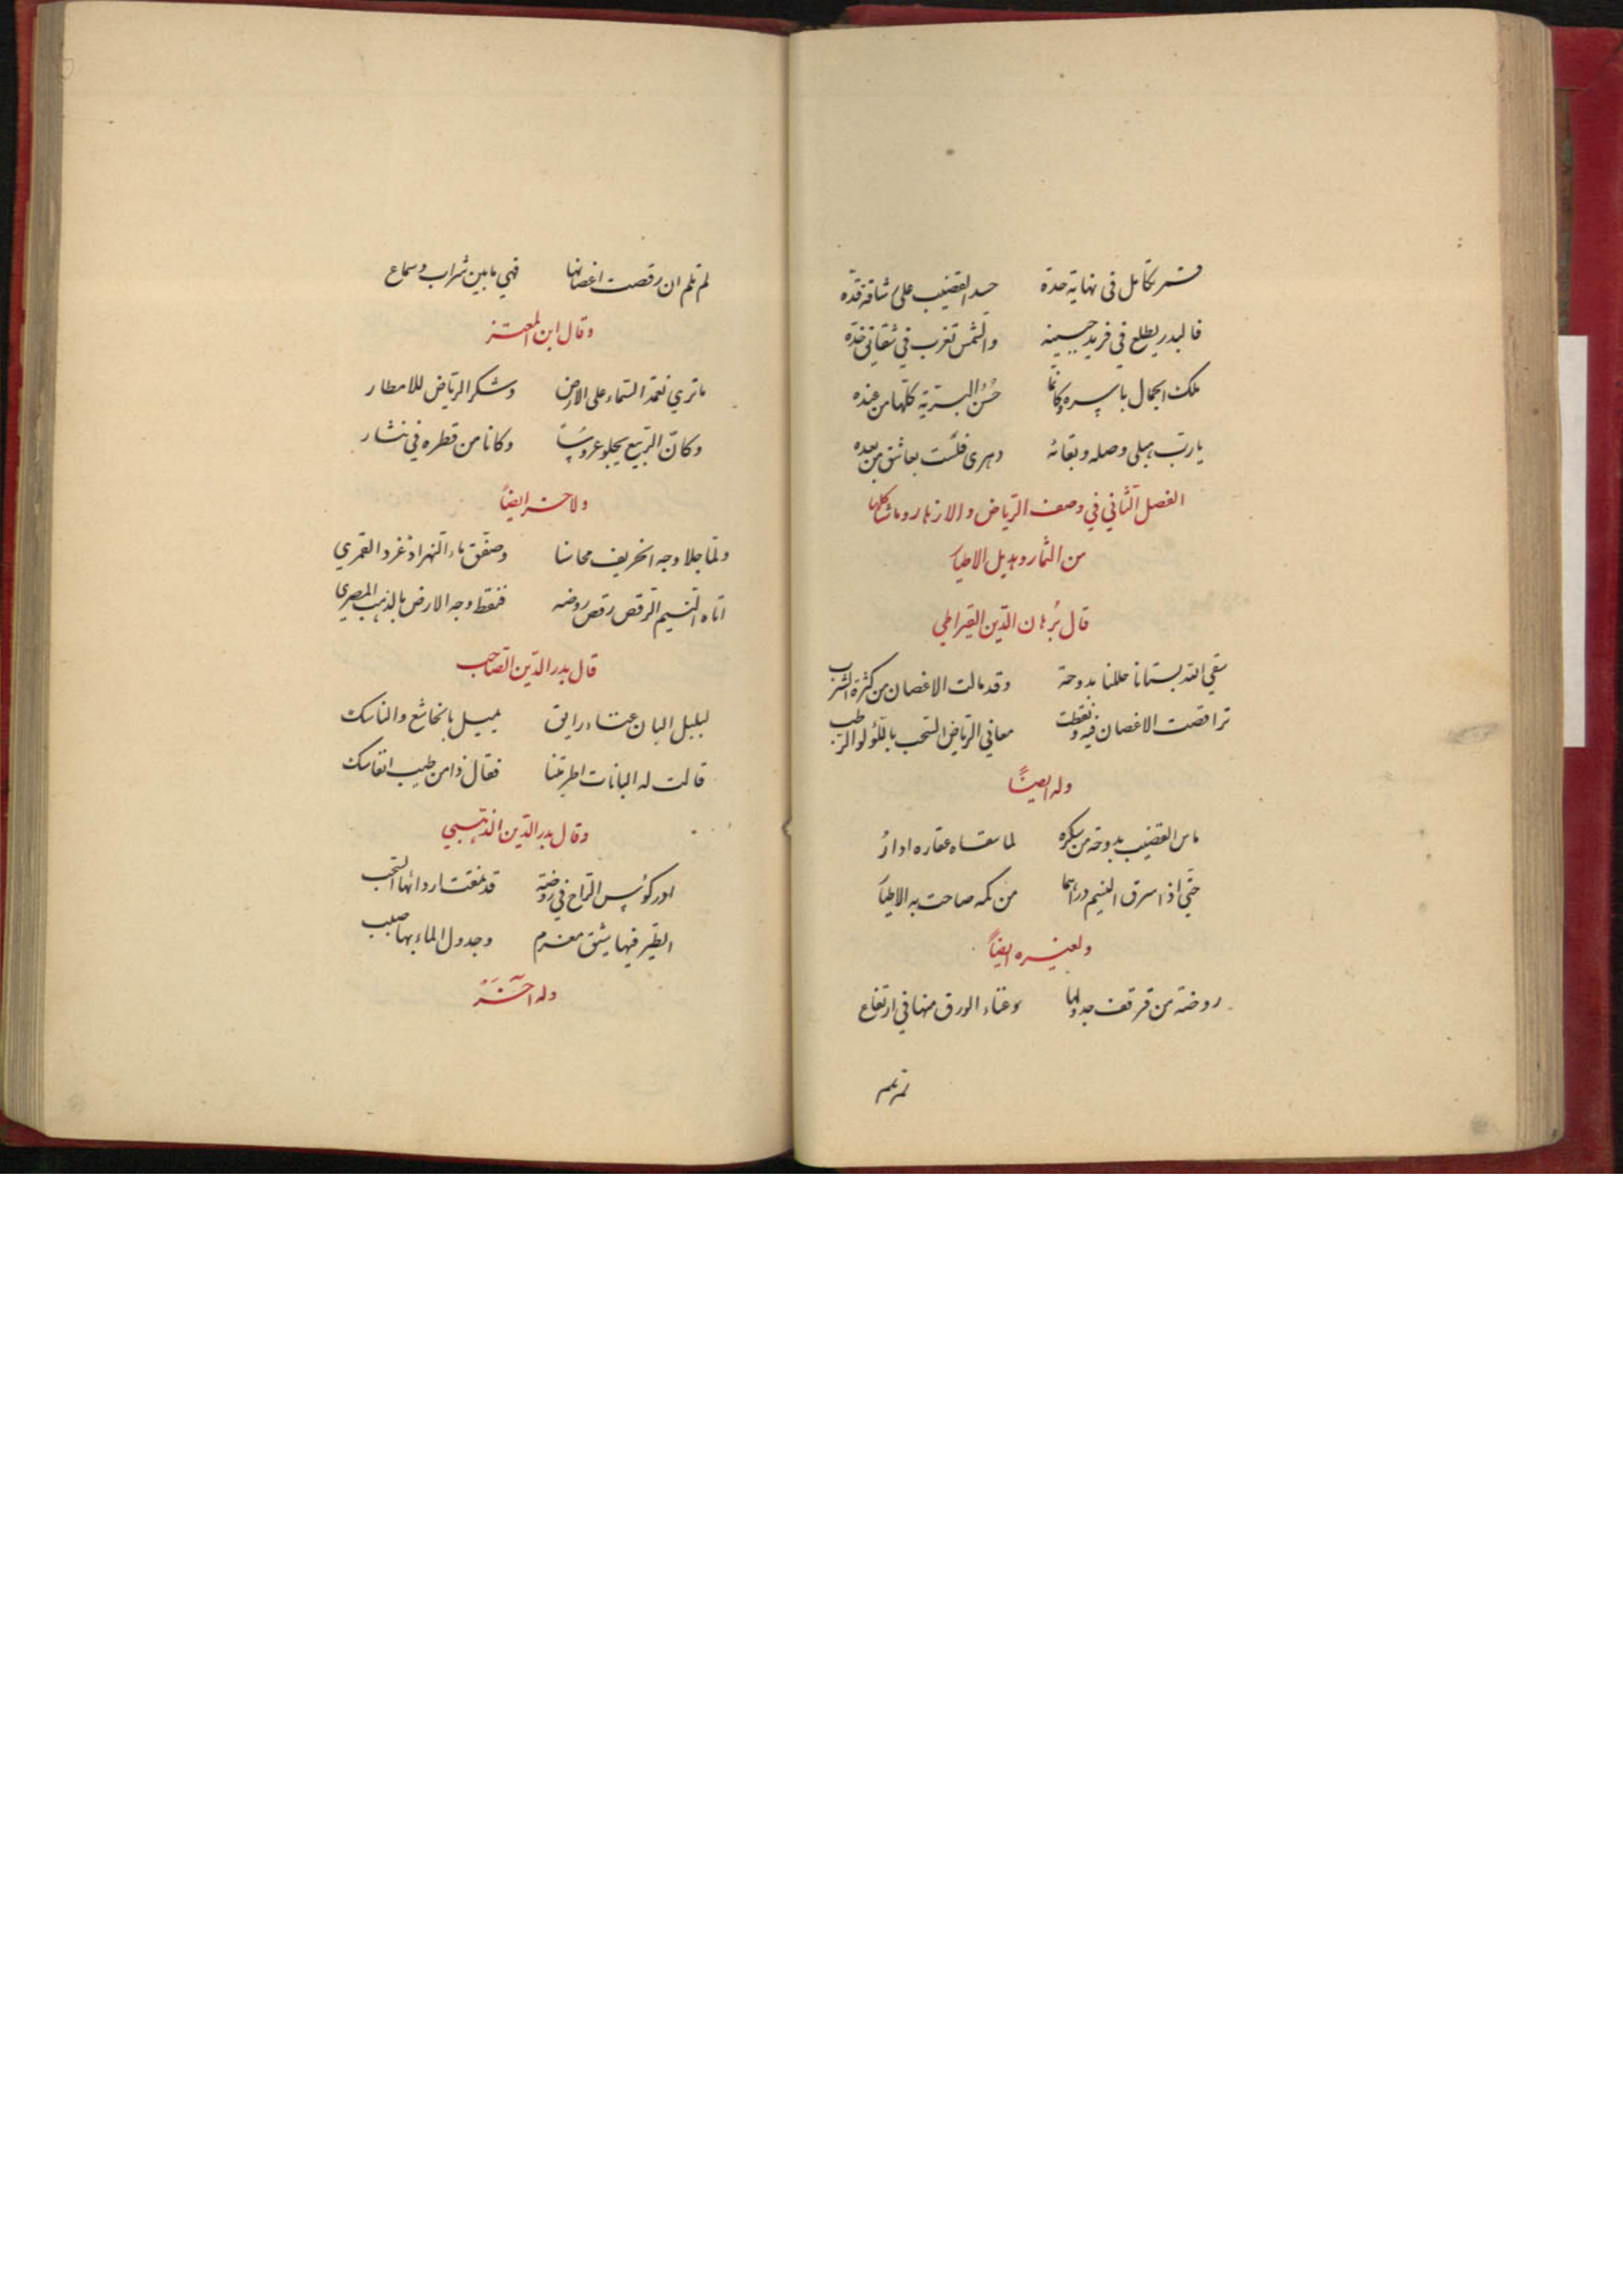 قمر تكامل فى نهاية حدة حسد القضيب على شاقة قدّه
فالبدر يطلع في فريد جبينه والشمس تغرب في شقايق خدّه
ملك الجمال باسره وكانما حُسْنُ البريّة كلّها من عنده
يا ربّ هبلى وصله وبقائه دهرى فلست بعاشق من بعده
الفصل الثّاني في وصف الرّياض والازهار وما شاكلها
من الثمار وهديل الاطيار
قال بُرهان الدّين القيراطي
سقي الله بستانا حللنا بدوحة وقد مالت الاغصان من كثرة الشرب
تراقصت الاغصان فيه ونقطت معاني الرياض السّحب باللّؤلو الرطب
وله ايضًا
ماس القضيب بدوحة من سكره لما سقاه عقاره ادارُ
حتّي اذا سرق النسيم دراهما من كمه صاحت به الاطيار
ولغيره ايضاً
روضة من قرقف جدولها وغناء الورق منها في ارتفاع
لم تلم
لم تلم ان رقصت اغصانها فهي ما بين شراب وسماع
وقال ابن المعتز
ما تري نعمة السّماء على الارض وشكر الرّياض للامطار
وكانّ الرّبيع يجلو عروسًا وكانا من قطره في نثار
ولاخر ايضاً
ولمّا جلا وجه الخريف محاسنا وصفّق ماء النهر اذ غرد القمري
اتاه النّسيم الرقص رقص روضه فنقط وجه الارض بالذهب المصري
قال بدر الدّين الصّاحب
لبلبل البان غناء رايق يميل بالخاشع والناسك
قالت له البانات اطربتنا فقال ذا من طيب انفاسك
وقال بدر الدّين الذّهبي
ادر كؤس الرّاح في روضة قد نمقت اردائها السّحب
الطّير فيها شيّق مغرم وجدول الماء بها صبب
وله اخَرَ